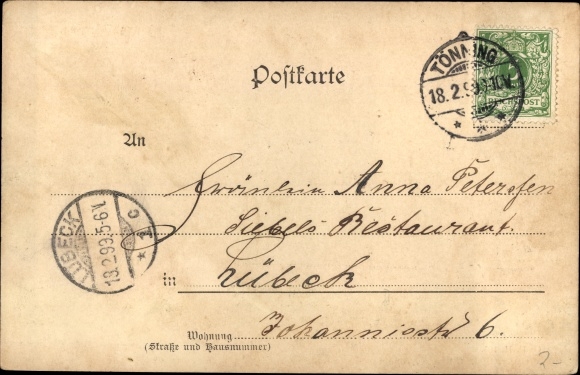 Postkarte
TÖNNING
18.2.99
REICHSPOST
An
Fräulein Anna Petersen
Siebels Restaurant.
LÜBECK
18.2.99.5-6N.
in
Lübeck
Wohnung
(Straße und Hausnummer)
Johannisstr 6.
2-